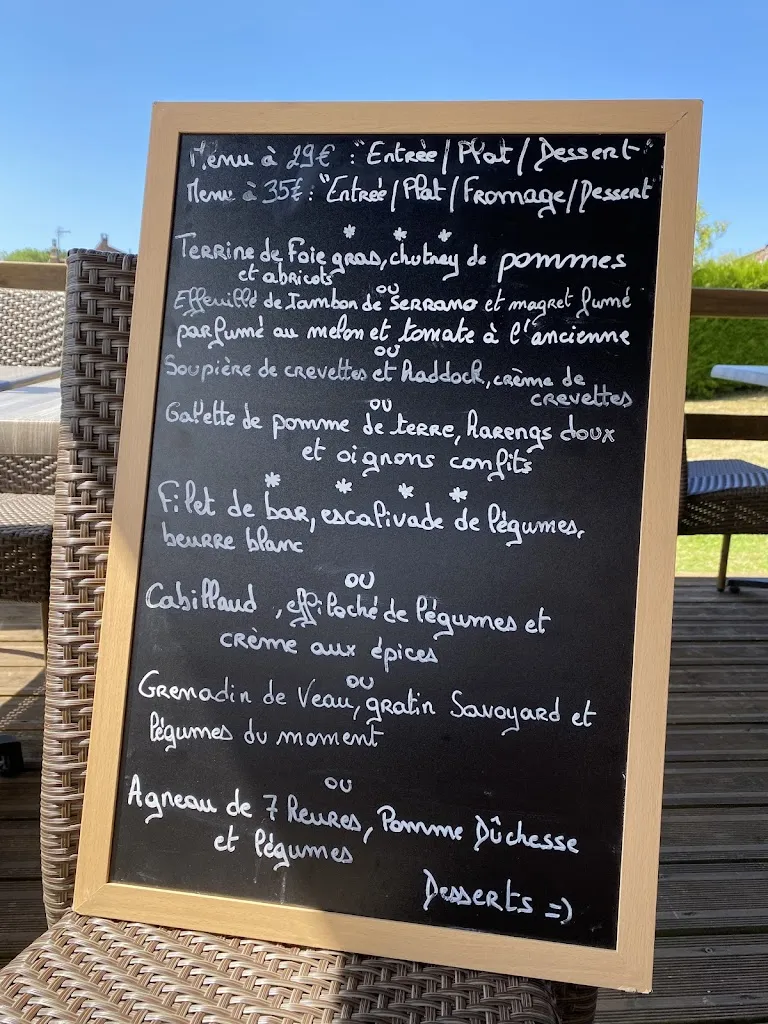 Menu à 29€ : "Entrée/Plat/Dessert"
Menu à 35€ : "Entrée/Plat/Fromage/Dessert
* * *
Terrine de Foie gras, chutney de pommes
et abricots
ou
Effeuillé de Jambon de Serrano et magret fumé
parfumé au melon et tomate à l'ancienne
ou
Soupière de crevettes et Haddock, crème de
crevettes
ou
Galette de pomme de terre, harengs doux
et oignons confits
* * * *
Filet de bar, escalivade de légumes,
beurre blanc
ou
Cabillaud , effiloché de légumes et
crème aux épices
ou
Grenadin de Veau, gratin Savoyard et
légumes du moment
ou
Agneau de 7 heures, Pomme Dûchesse
et légumes
Desserts =)